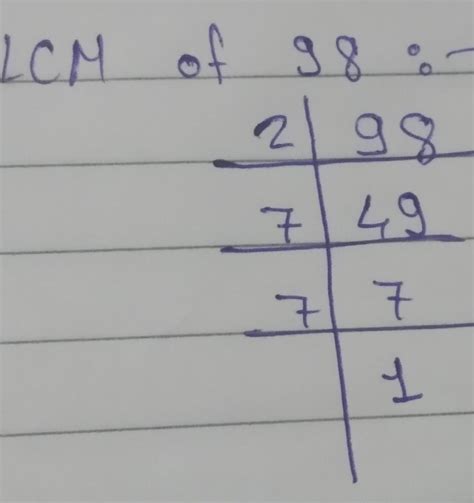 LCM of 98 :-
2 98
7 49
7 7
1